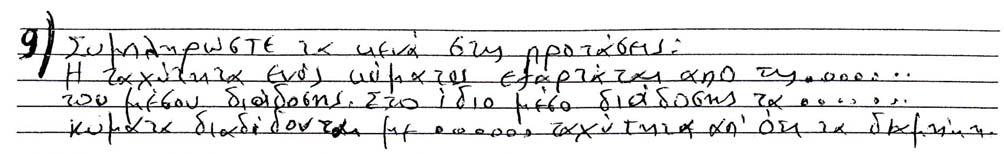 9) Συμπληρώστε τα κενά στις προτάσεις:
Η ταχύτητα ενός κύματος εξαρτάται από τις........
του μέσου διάδοσης. Στο ίδιο μέσο διάδοσης τα .......
κύματα διαδίδονται με ....... ταχύτητα απ' ότι τα διαμήκη.